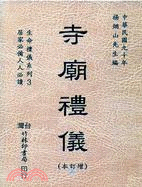 中華民國九十年
楊烱山先生編
寺廟禮儀
(本訂增)
生命禮儀系列3
居家必備人人必讀
台灣竹林印書局印行